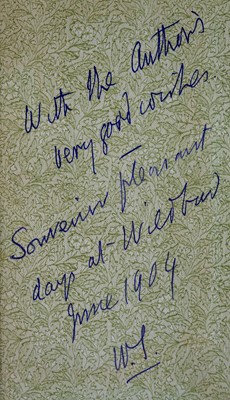 With the Author's
very good wishes.
Souvenir pleasant
days at Wildbad
June 1904
W.S.